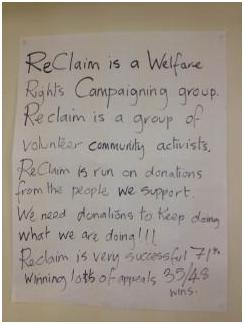 ReClaim is a Welfare
Rights Campaigning group.
Reclaim is a group of
volunteer community activists.
ReClaim is run on donations
from the people we support.
We need donations to keep doing
what we are doing!!!
Reclaim is very successful 71%
winning lots of appeals 35/48
wins.